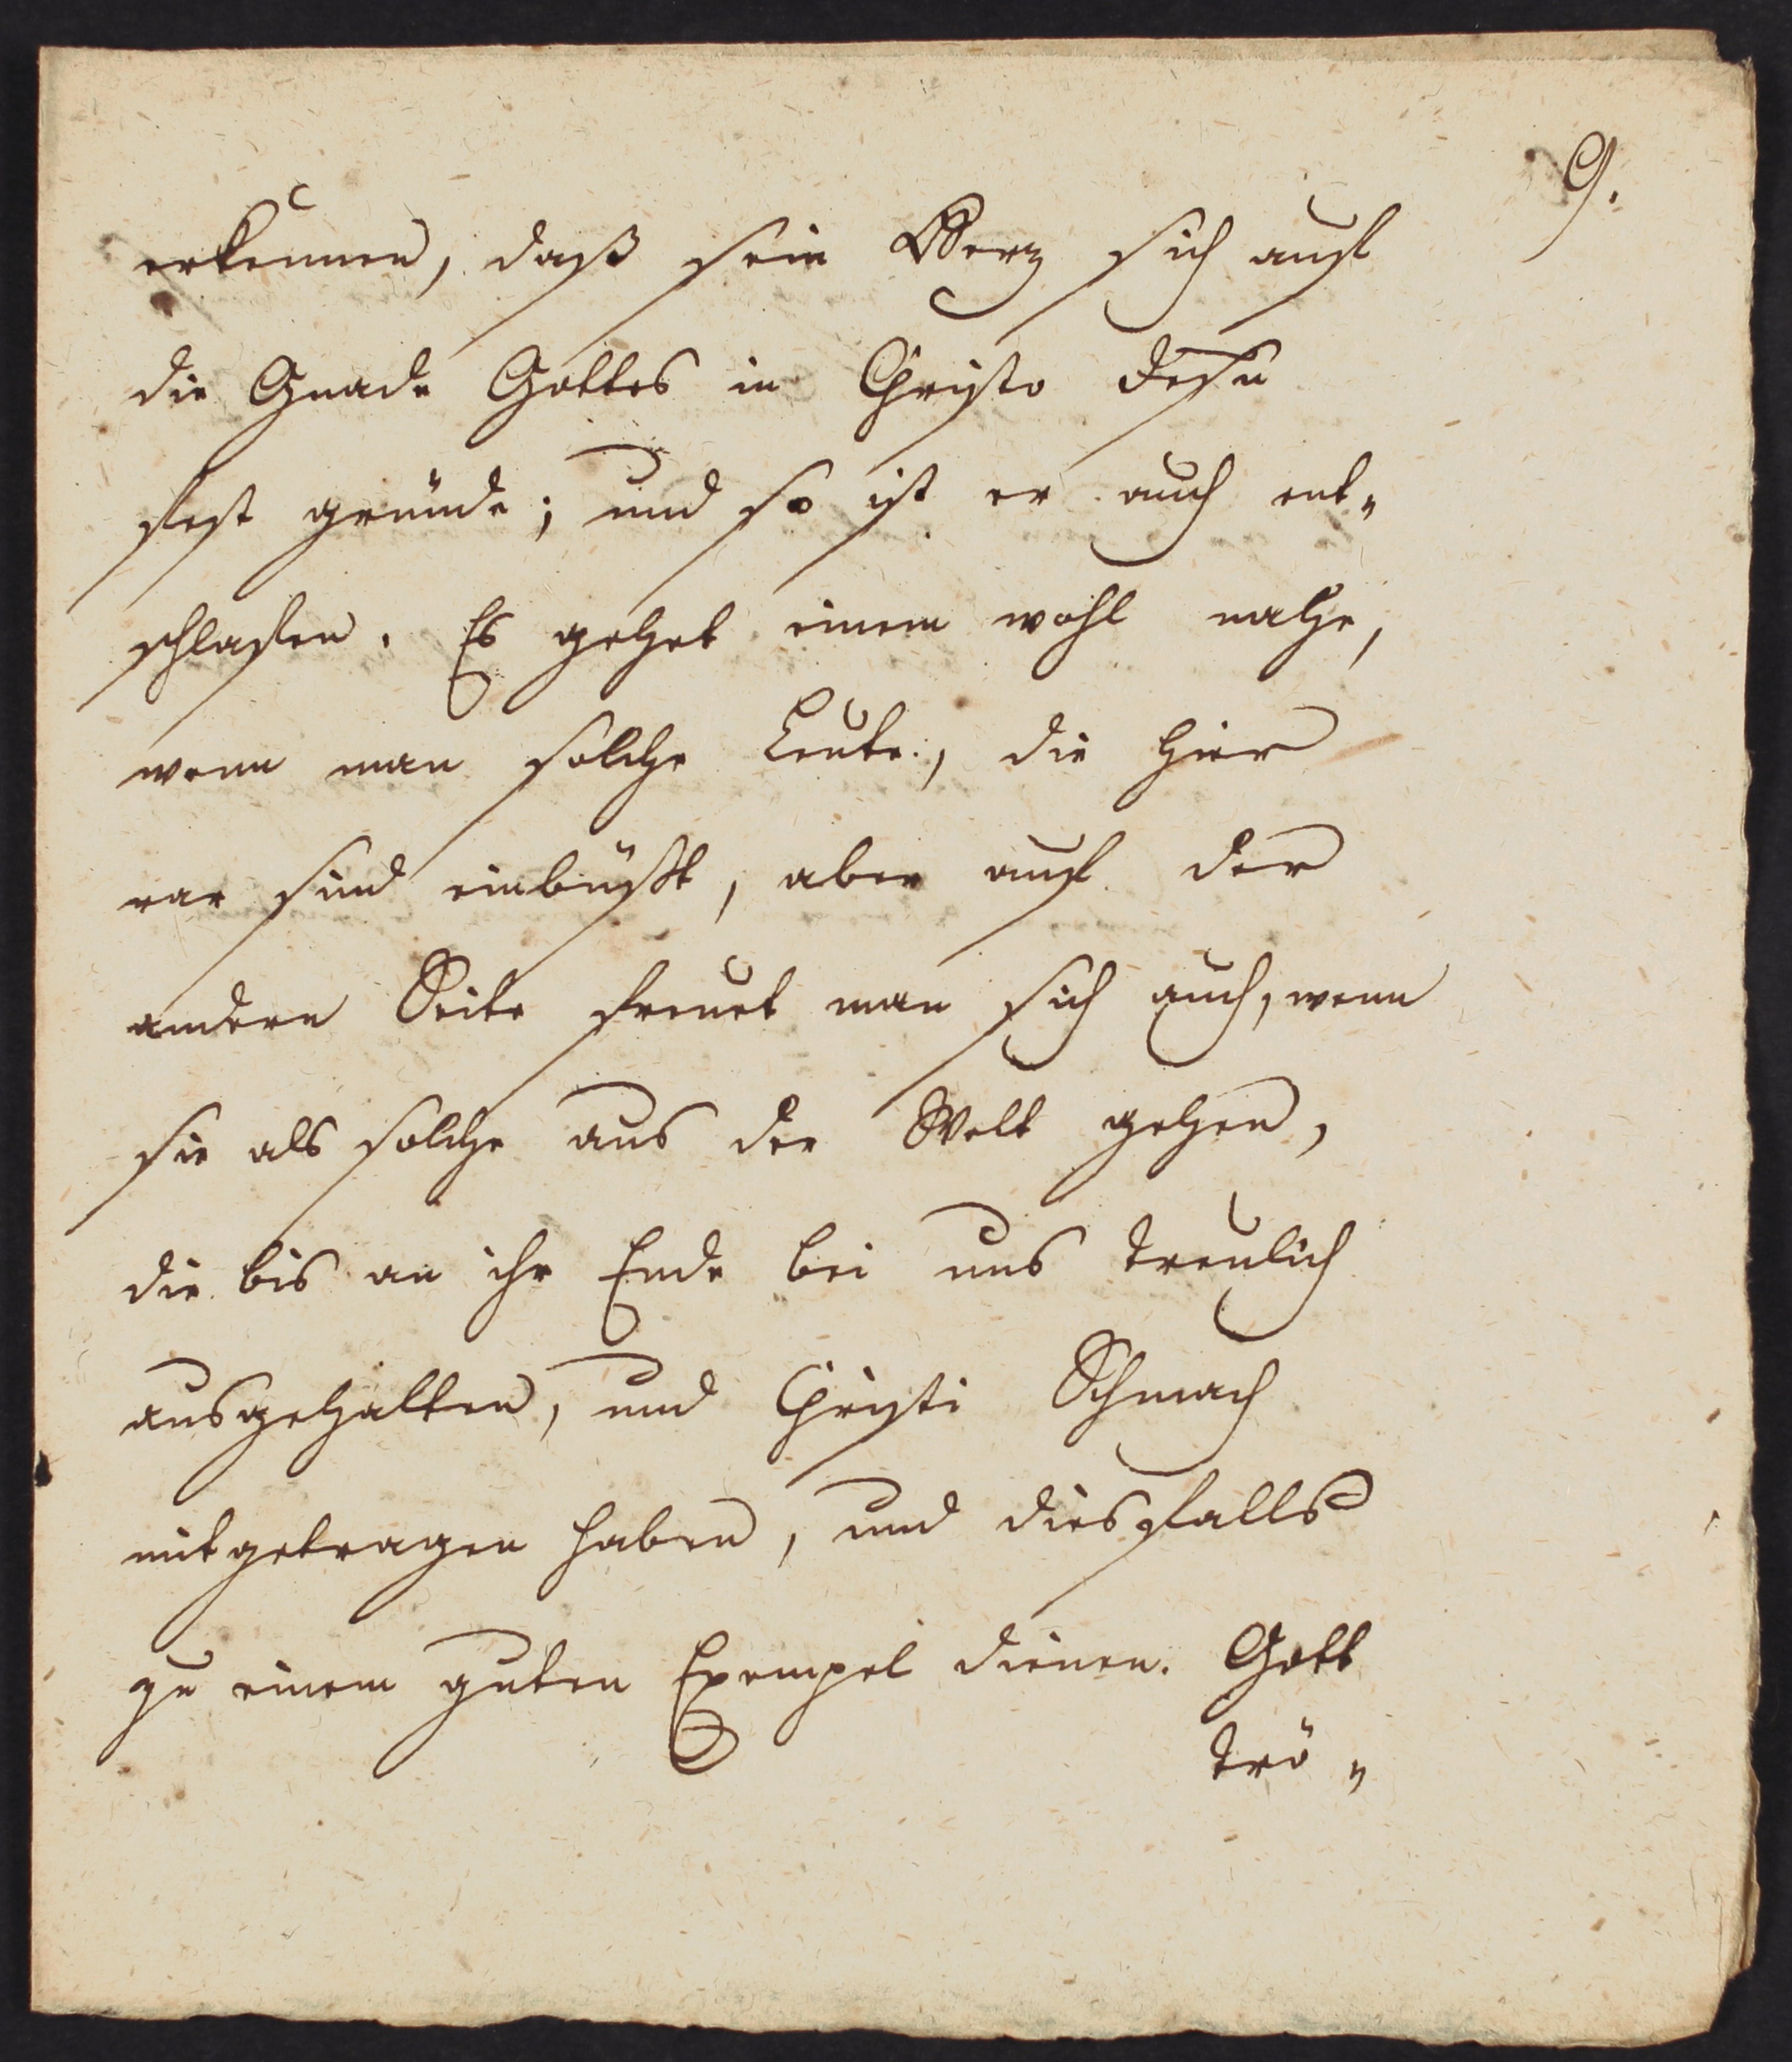 9.
erkennen, daß sein Herz sich auf
die Gnade Gottes in Christo Jesu
fest gründe; und so ist er auch ent„
schlafen. Es gehet einem wohl nahe,
wenn man solche Leute, die hier
rar sind einbüßt, aber auf der
andern Seite freuet man sich auch, wenn
sie als solche aus der Welt gehen,
die bis an ihr Ende bei uns treulich
ausgehalten, und Christi Schmach
mitgetragen haben, und diesfalls
zu einem guten Exempel dienen. Gott
trö„